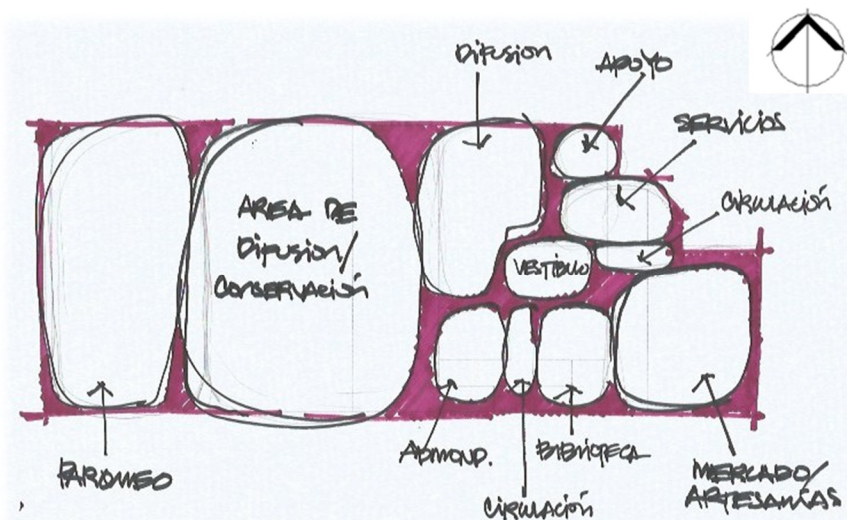 DIFUSION
APOYO
SERVICIOS
CIRCULACIÓN
AREA DE
DIFUSION/
CONSERVACIÓN
VESTIBULO
PARQUEO
ADMOND.
CIRCULACIÓN
BIBLIOTECA
MERCADO/
ARTESANIAS